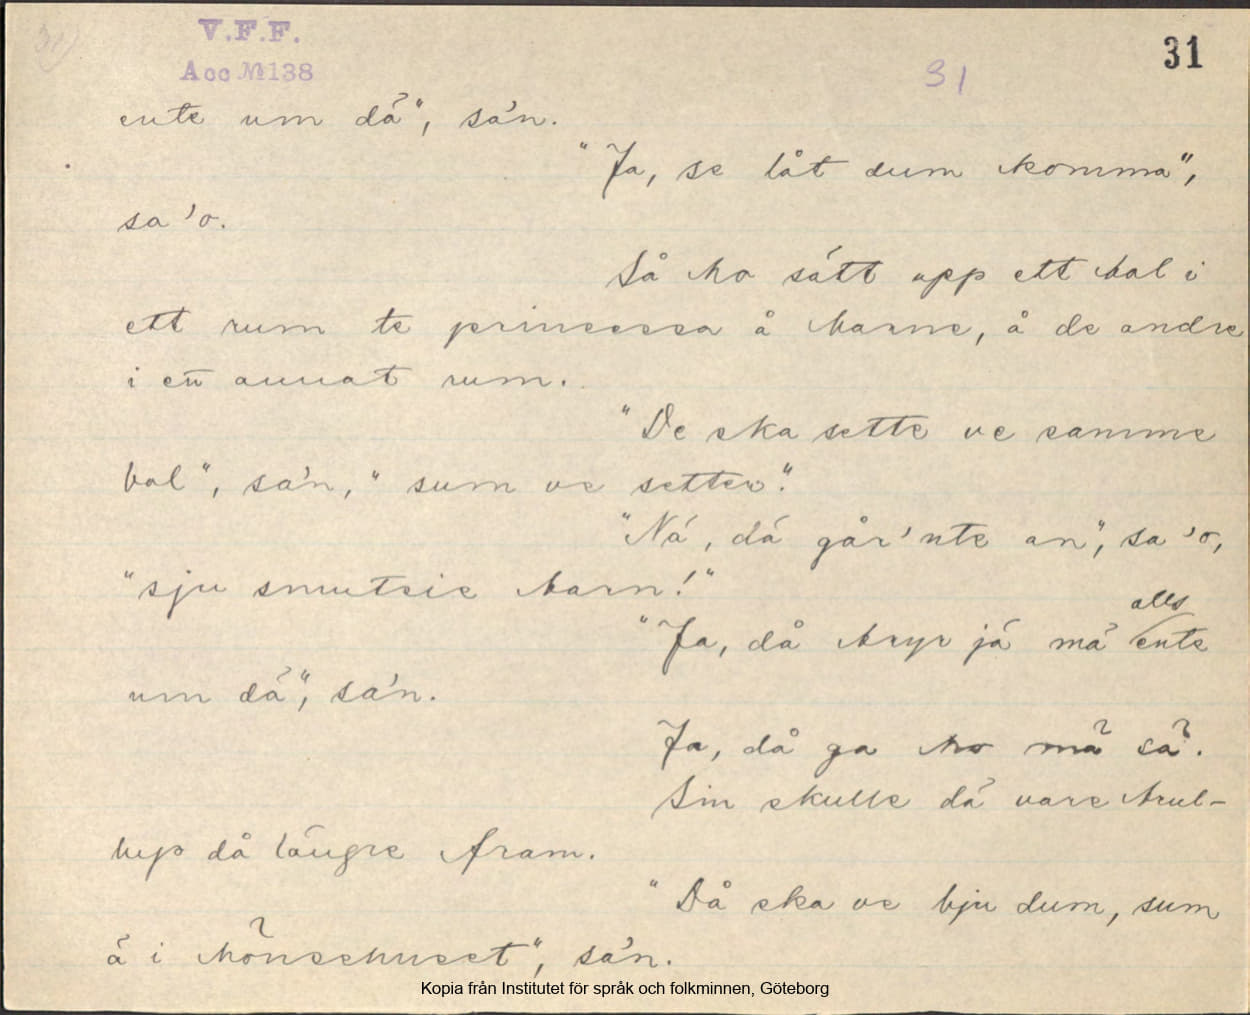 31)
V.F.F.
Acc № 138
31
31
ente um dä", sa'n.
"Ja, se låt dum komma",
sa 'o.
Så ho sätt upp ett bal i
ett rum te prinsessa å barne, å de andre
i en annat rum.
"De ska sette ve samme
bal", sa'n, "sum ve setter."
"Nä, dä går'nte an", sa 'o,
"sju smutsie barn!"
"Ja, då bryr jä mä alls ente
um dä", sa'n.
Ja, då ga ho mä sä.
Sin skulle dä vare brul-
lup då längre fram.
"Då ska ve bju dum, sum
ä i hönsehuset", sa'n.
Kopia från Institutet för språk och folkminnen, Göteborg